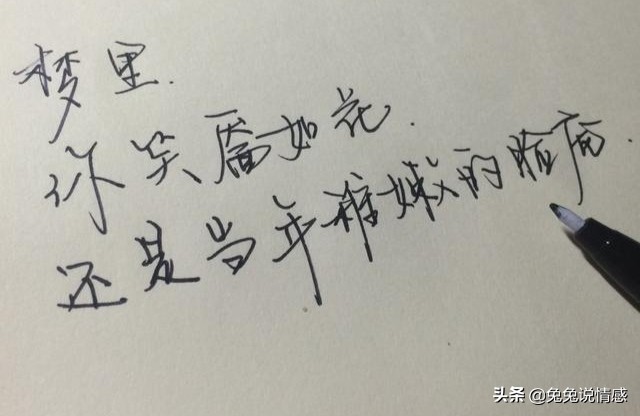 梦里.
你笑靥如花.
还是当年稚嫩的脸庞.
头条 @兔兔说情感